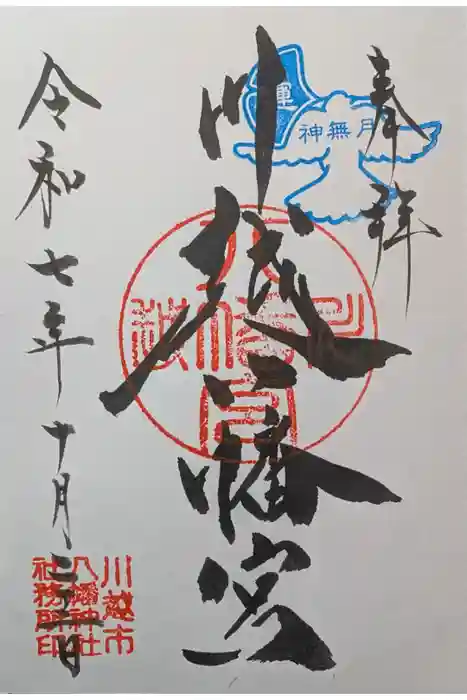 奉拝
運
神無月
川越八幡宮
川越八幡宮
令和七年十月日
川越市
八幡神社
社務所印